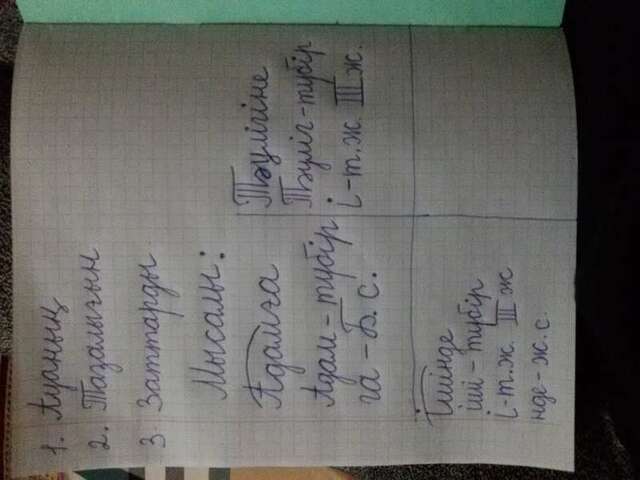 1. Ауаның
2. Тазалығын
3 Заттарды
Мысалы:
Адамға
Адам – түбір
ға – Б. с.
Тәулігіне
Тәуліг – түбір
і – т.ж. III ж.
Ішінде
іші – түбір
і – т.ж. III ж
нде – ж.с.